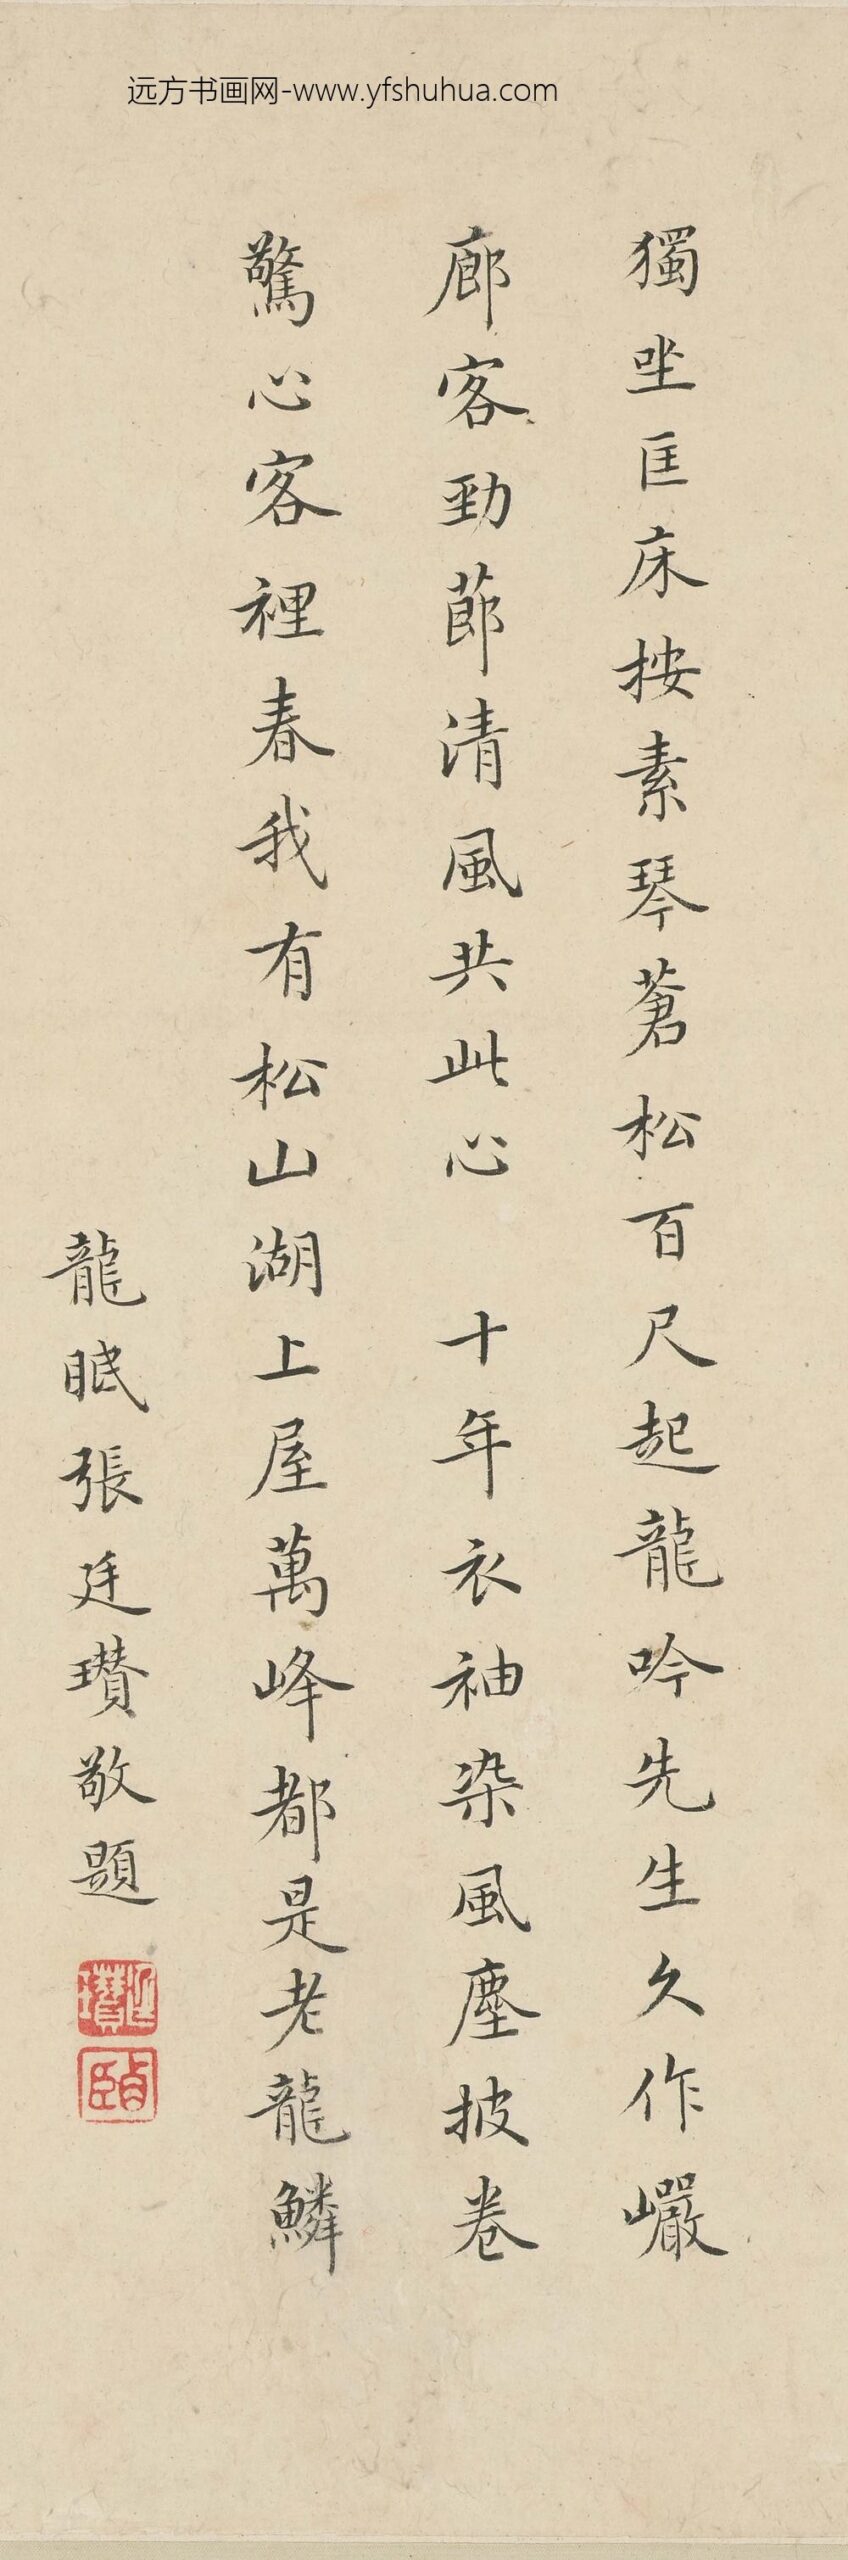 远方书画网-www.yfshuhua.com
獨坐匡床按素琴蒼松百尺起龍吟先生久作巖
廊客勁節清風共此心 十年衣袖染風塵披卷
驚心客裡春我有松山湖上屋萬峰都是老龍鱗
龍眠張廷瓚敬題
廷瓚